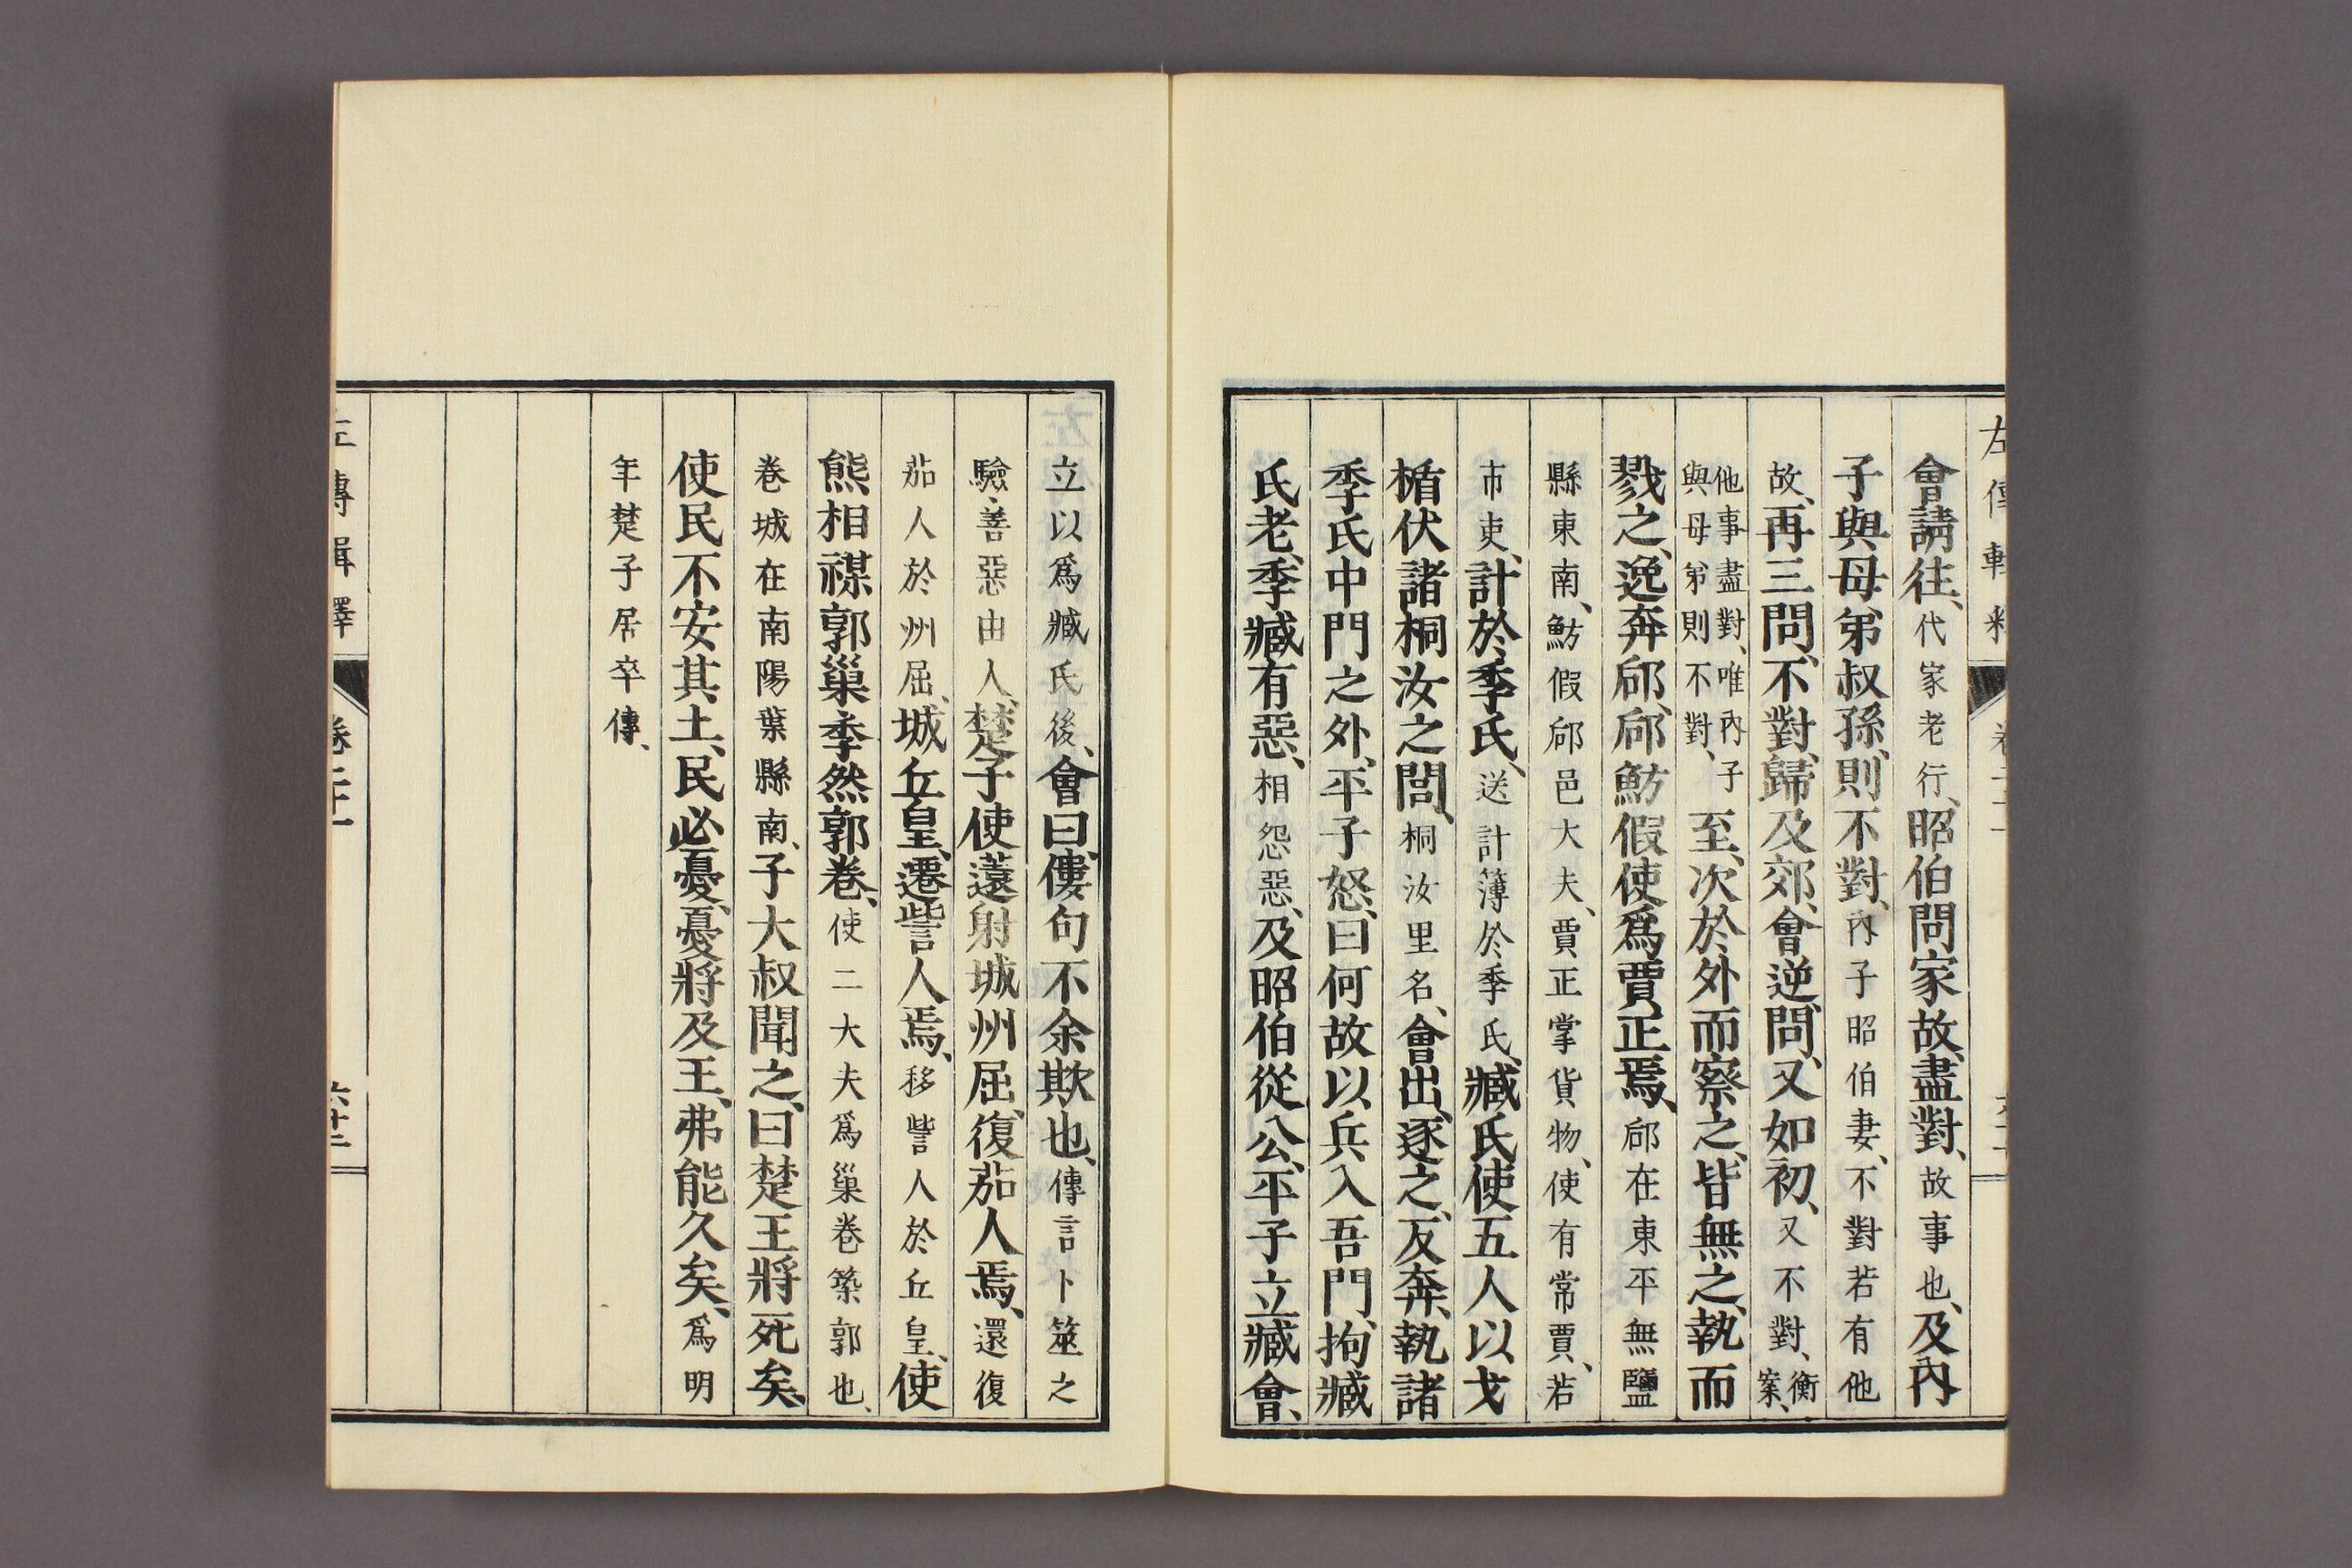 會請往、代家老行、昭伯問家故、盡對、故事也、及內
子與母弟叔孫、則不對、內子昭伯妻、不對若有他
故、再三問、不對、歸及郊、會逆、問、又如初、又不對、衡案、
他事盡對、唯內子與母弟則不對、至、次於外而察之、皆無之、執而
戮之、逸奔郈、郈魴假使爲賈正焉、郈在東平無鹽
縣東南、魴假郈邑大夫、賈正掌貨物、使有常賈、若
市吏、計於季氏、送計簿於季氏、臧氏使五人以戈
楯伏諸桐汝之閭、桐汝里名、會出、逐之、反奔、執諸
季氏中門之外、平子怒、曰何故以兵入吾門、拘臧
氏老、季臧有惡、相怨惡、及昭伯從公、平子立臧會、
立以爲臧氏後、會曰、僂句不余欺也、傳言卜筮之
驗、善惡由人、楚子使薳射城州屈、復茄人焉、還復
茄人於州屈、城丘皇、遷訾人焉、移訾人於丘皇、使
熊相禖郭巢季然郭卷、使二大夫爲巢卷築郭也、
卷城在南陽葉縣南、子大叔聞之、曰楚王將死矣、
使民不安其土、民必憂、憂將及王、弗能久矣、爲明
年楚子居卒傳、
左傳輯釋 卷二十一 六十二